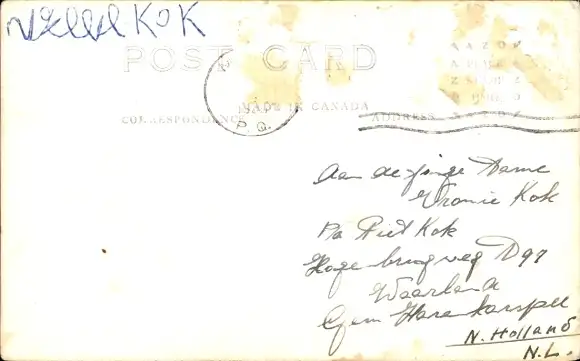 KOK
POST CARD
P.Q.
MADE IN CANADA
CORRESPONDENCE
ADDRESS
Aan de jonge Dame
Vronie Kok
P/a Piet Kok
Hogebrugweg D97
Waarland
Gem Harenkarspel
N. Holland
N.L.